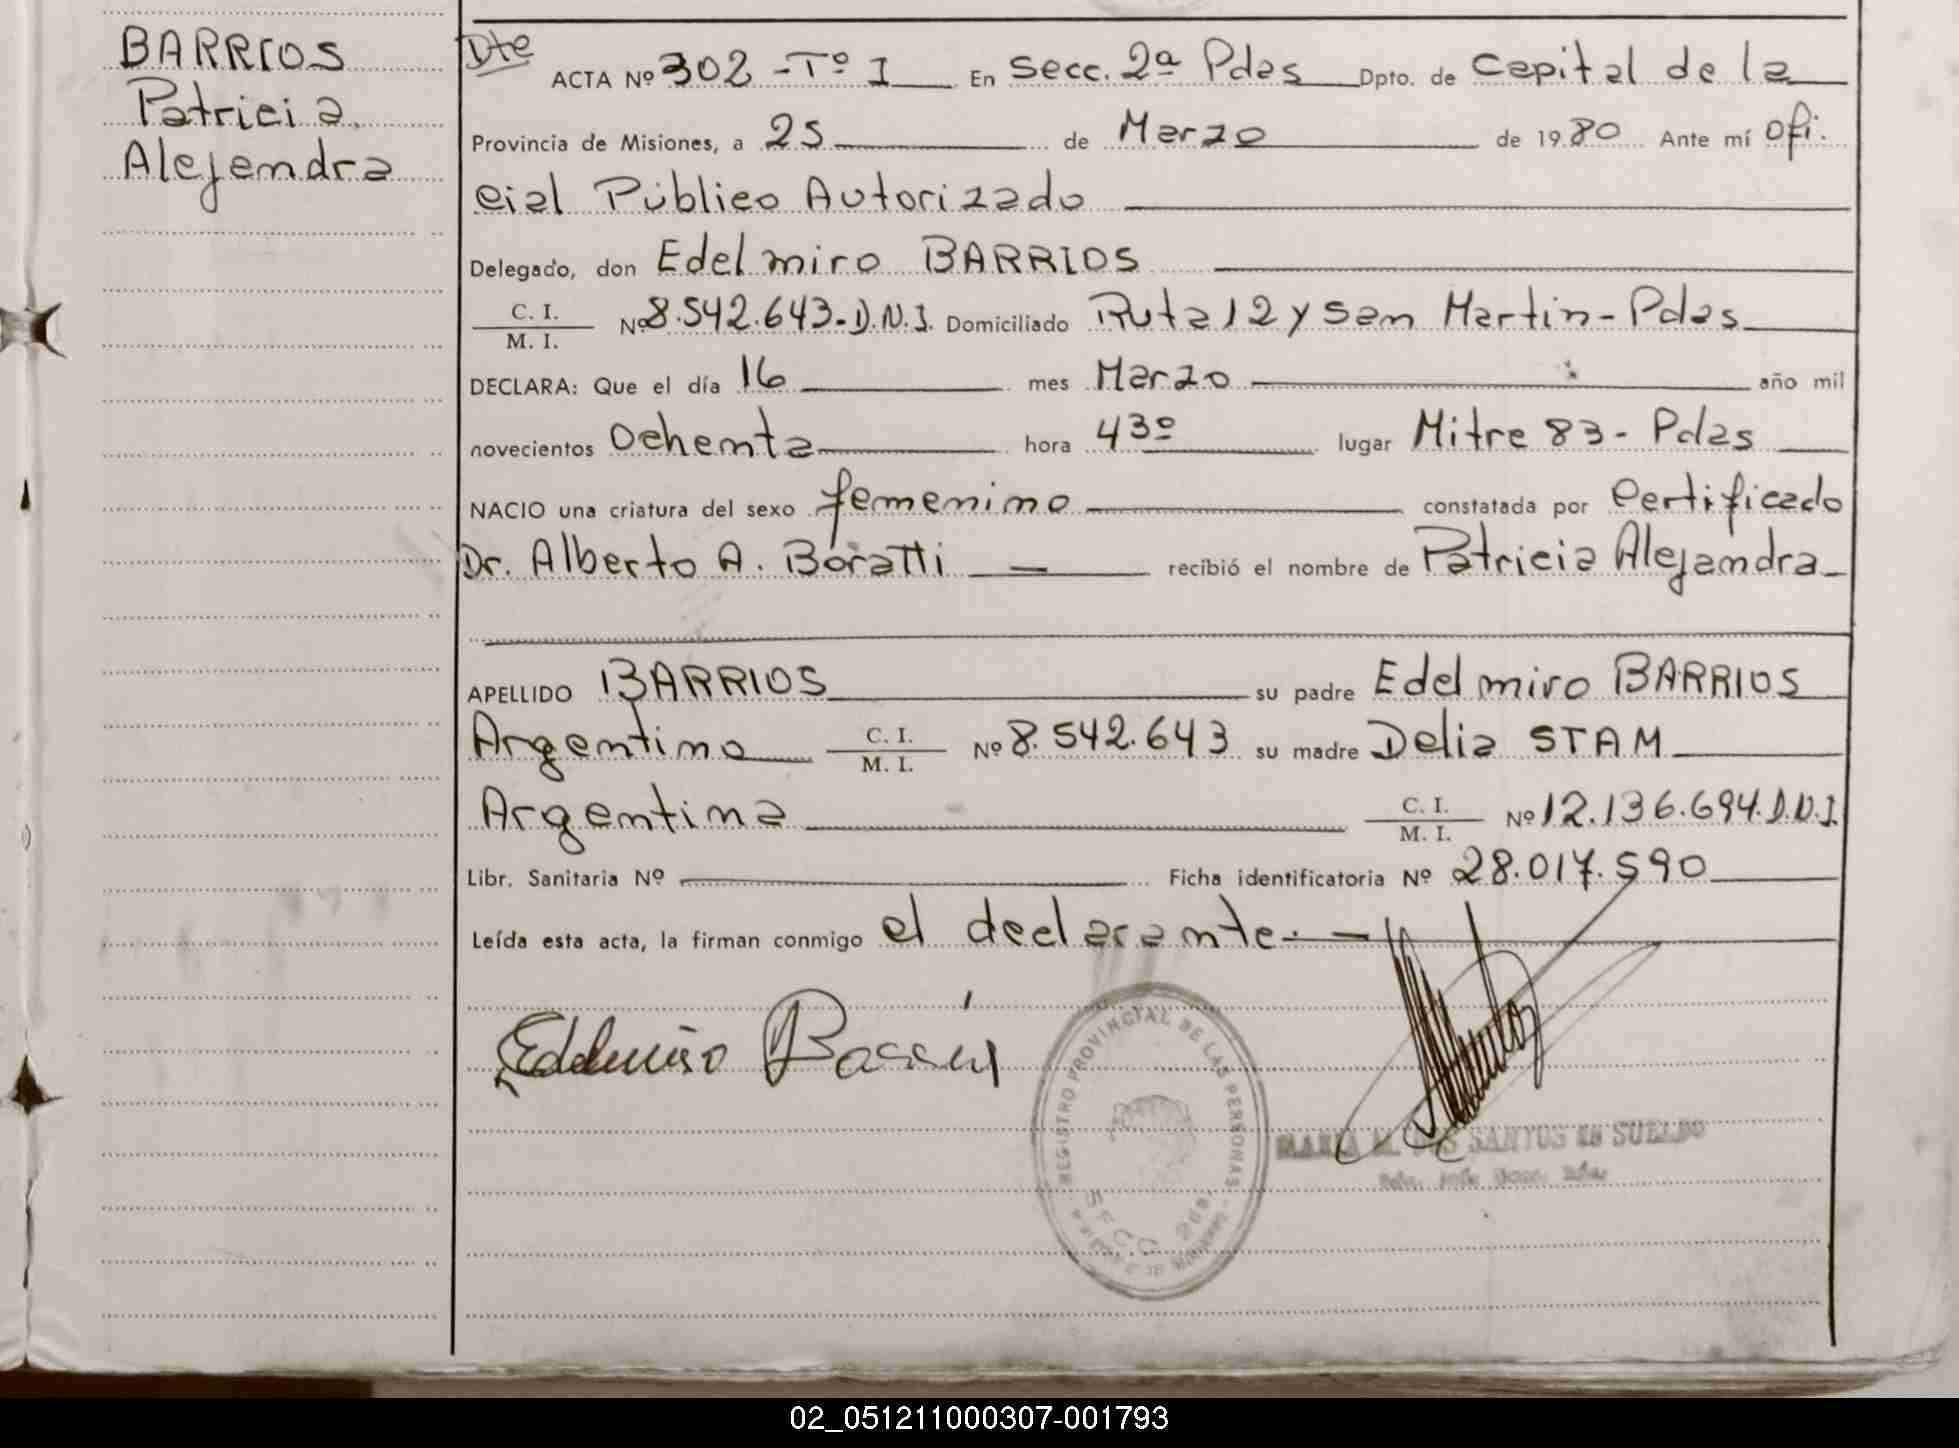 BARRIOS
Patricia
Alejandra
Dte
ACTA Nº 302 - Tº I En Secc. 2ª Pdas Dpto. de Capital de la
Provincia de Misiones, a 25 de Marzo de 1980 Ante mí Ofi.
cial Público Autorizado
Delegado, don Edelmiro BARRIOS
C. I.
M. I. Nº 8.542.643-D.N.I. Domiciliado Ruta 12 y San Martin - Pdas
DECLARA: Que el día 16 mes Marzo año mil
novecientos Ochenta hora 4 30 lugar Mitre 83 - Pdas
NACIO una criatura del sexo femenino constatada por Certificado
Dr. Alberto A. Boratti recibió el nombre de Patricia Alejandra
APELLIDO BARRIOS su padre Edelmiro BARRIOS
Argentino C. I.
M. I. Nº 8.542.643 su madre Delia STAM
Argentina C. I.
M. I. Nº 12.136.694.D.N.I.
Libr. Sanitaria Nº Ficha identificatoria Nº 28.017.590
Leída esta acta, la firman conmigo el declarante.-
Edelmiro Barrios
REGISTRO PROVINCIAL DE LAS PERSONAS
SECC. 2da
MARIA M. DOS SANTOS de SUELDO
02_051211000307-001793